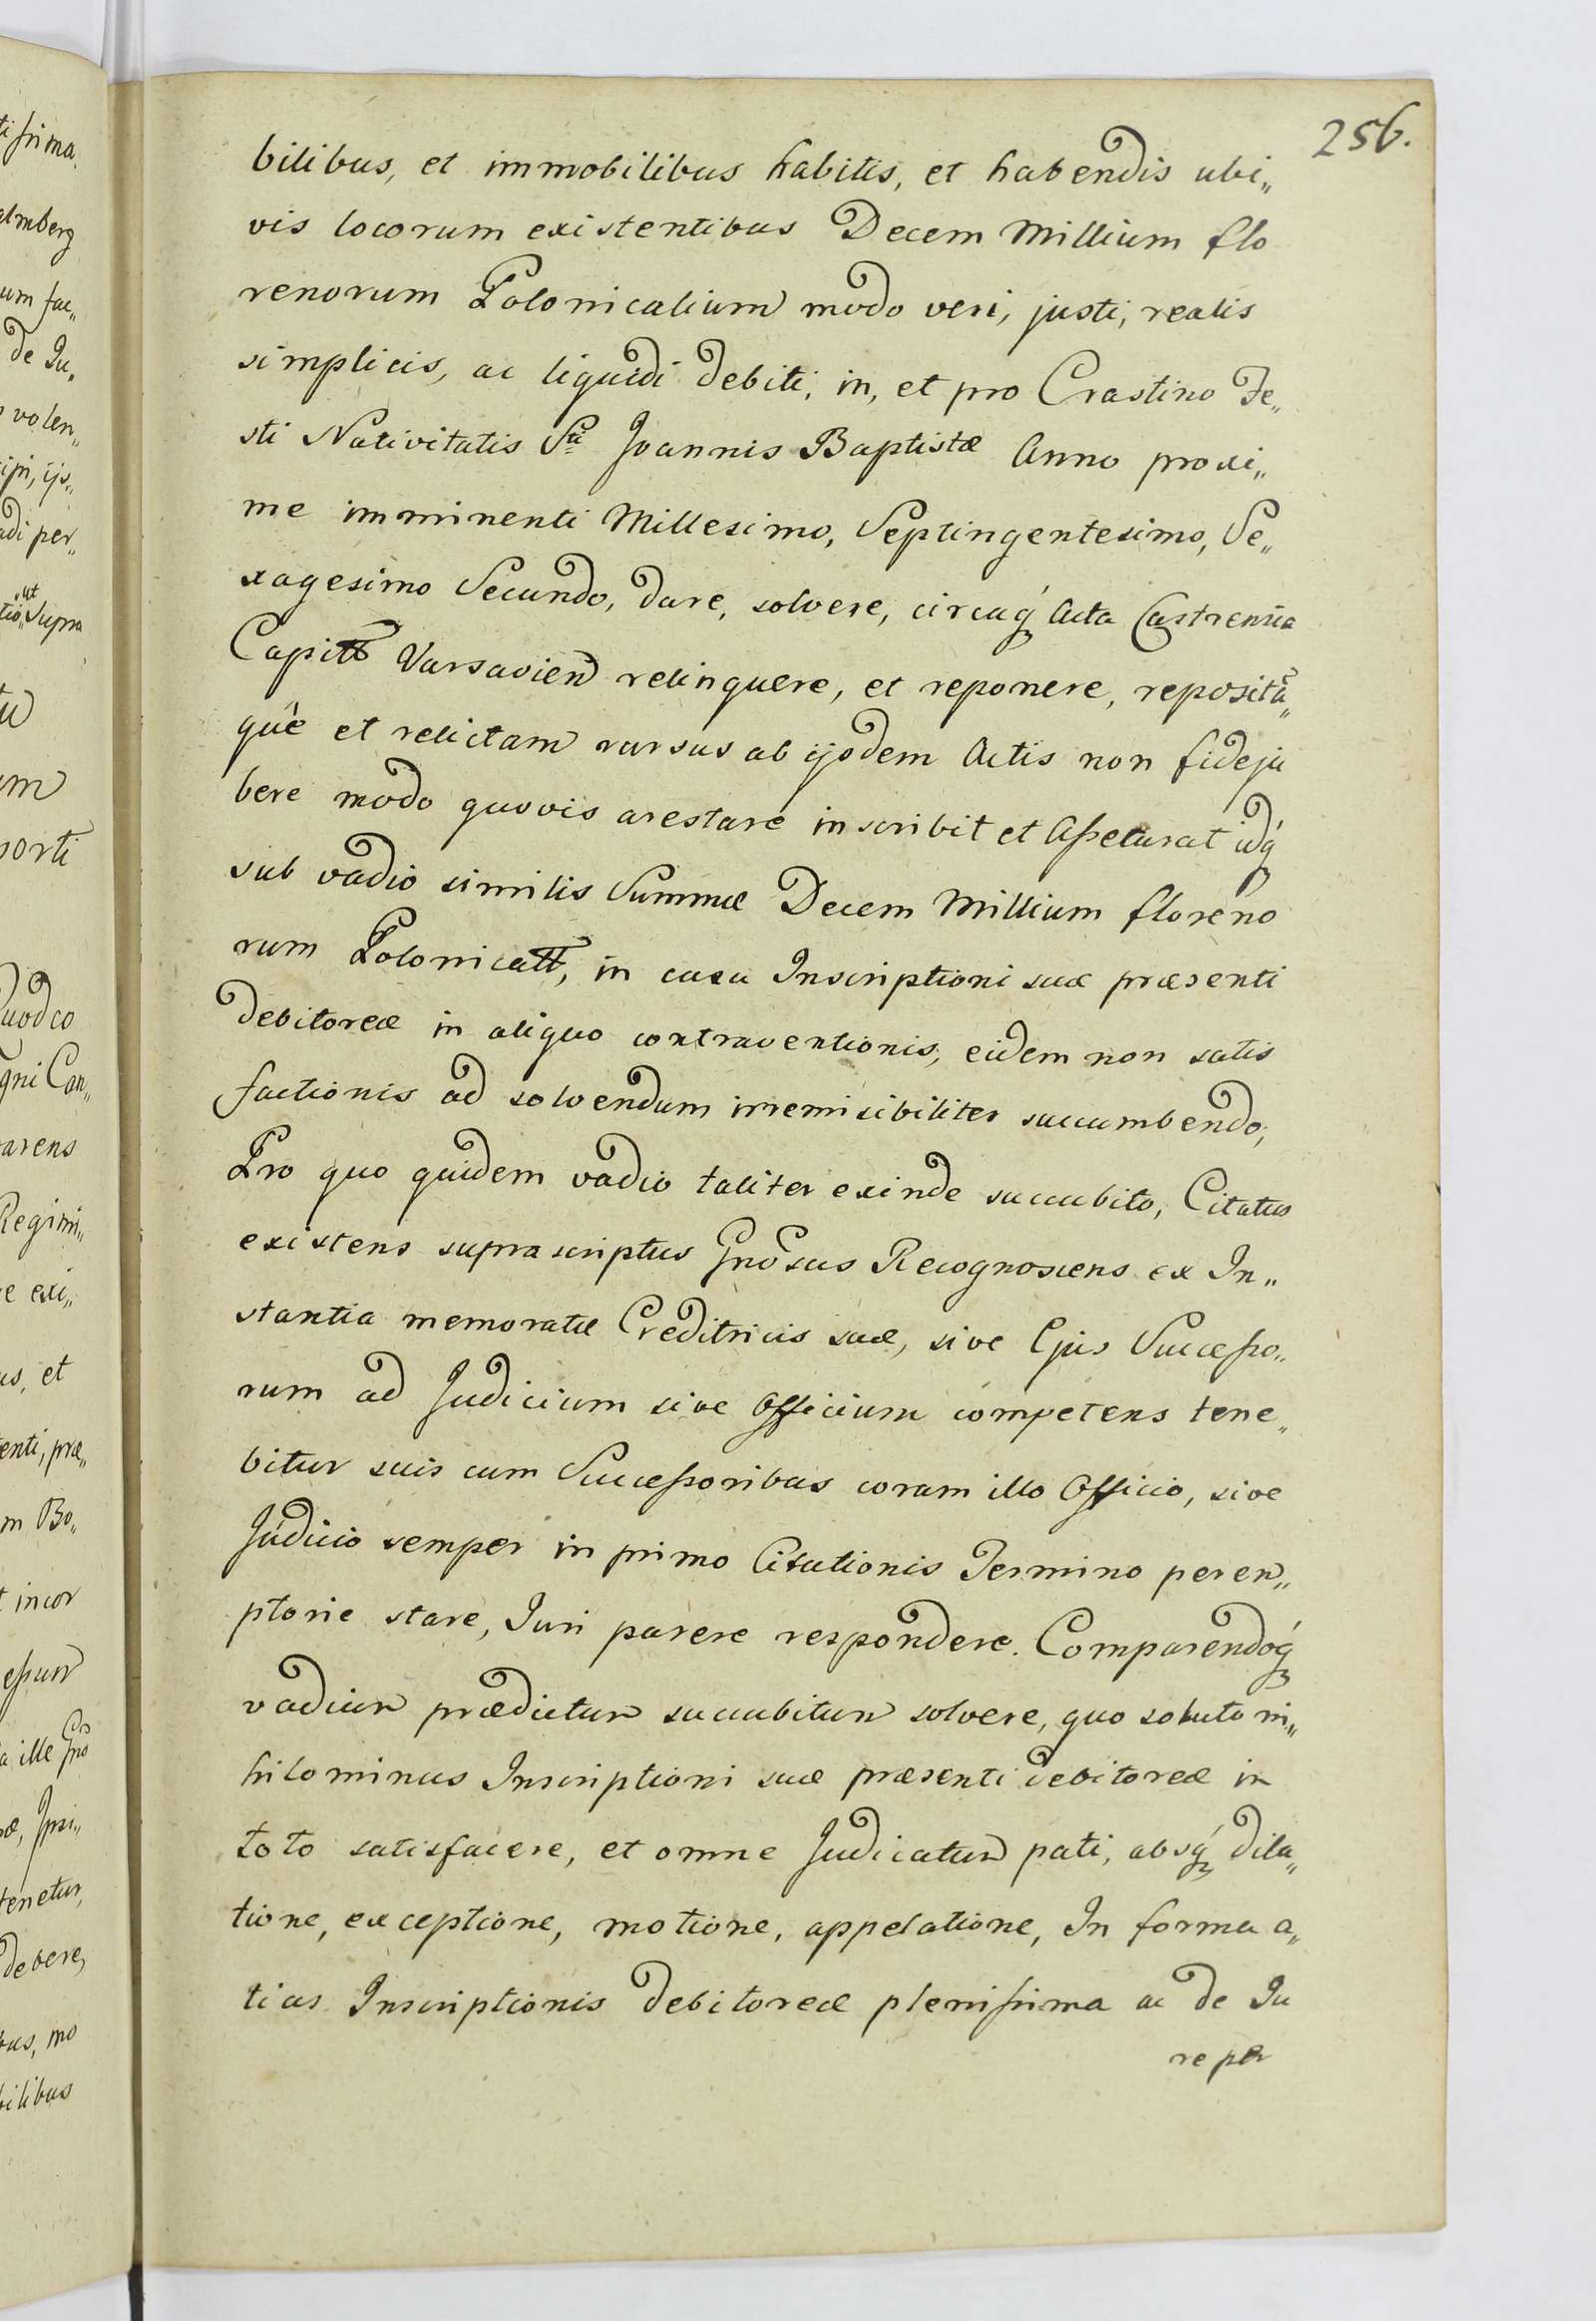 256.
bilibus, et immobilibus habitis, et habendis ubi„
vis locorum existentibus Decem Millium flo
renorum Polonicalium modo veri, justi, realis
simplicis, ac liquidi debiti, in, et pro Crastino Fe„
sti Nativitatis Sti Joannis Baptistæ Anno proxi„
me imminenti Millesimo, Septingentesimo, Se„
xagesimo Secundo, dare, solvere, circaq́ Acta Castrensia
Capitt Varsavien relinquere, et reponere, repositã„
que et relictam rursus ab ijsdem Actis non fideju
bere modo quovis arestare inscribit et Assecurat idq́
sub vadio similis Summæ Decem Millium floreno
rum Polonicatt, in casu Inscriptioni suæ præsenti
debitoreæ in aliquo contraventionis, eidem non satis
factionis ad solvendum irremisibiliter succumbendo;
Pro quo quidem vadio taliter exinde succubito, Citatus
existens suprascriptus Gnosus Recognoscens ex In„
stantia memoratæ Creditricis suæ, sive Ejus Successo„
rum ad Judicium sive Officium competens tene„
bitur suis cum Successoribus coram illo Officio, sive
Judicio semper in primo Citationis Termino peren„
ptorie stare, Juri parere respondere. Comparendoq́
vadium prædictum succubitum solvere, quo soluto ni„
hilominus Inscriptioni suæ præsenti debitoreæ in
toto satisfacere, et omne Judicatum pati, absq́ dila„
tione, exceptione, motione, appelatione, In forma a„
lias Inscriptionis debitoreæ plenissima ac de Ju
re per